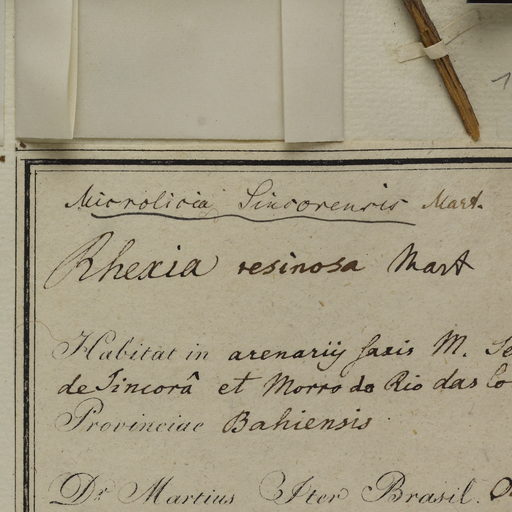 Microlicia Sincorensis Mart.
Rhexia resinosa Mart
Habitat in arenariij saxis M. Se
de Sincorâ et Morro do Rio das Co
Provinciae Bahiensis
Dr. Martius Iter Brasil.